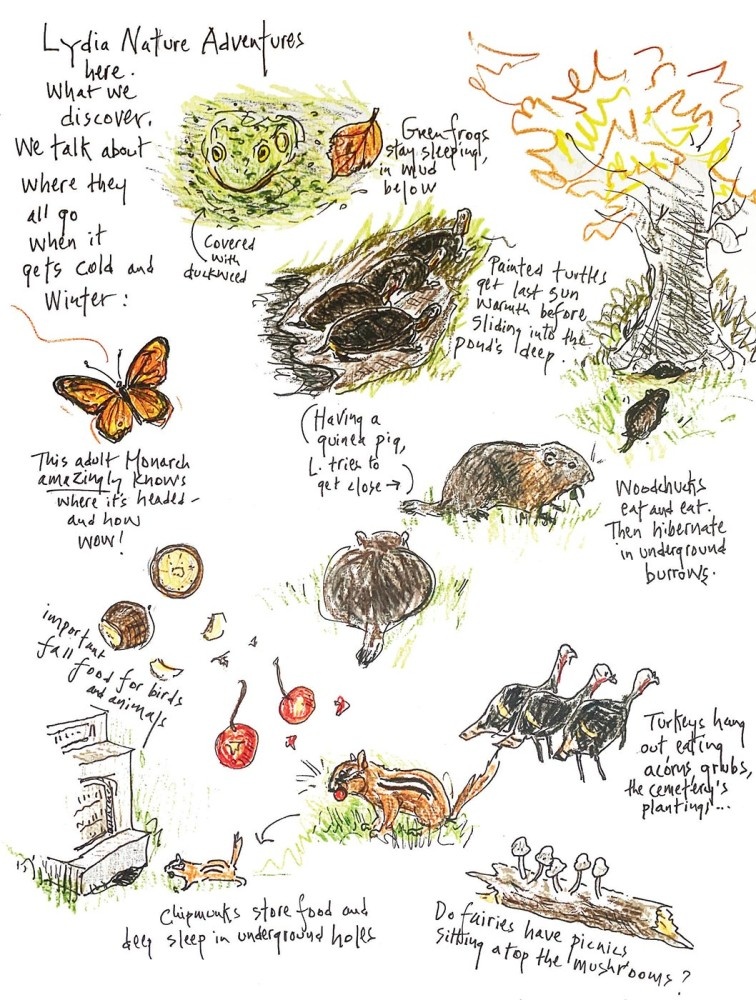 Lydia Nature Adventures
here.
What we
discover.
We talk about
where they
all go
when it
gets cold and
Winter:
Green frogs
stay sleeping,
in mud
below
Covered
with
duckweed
Painted turtles
get last sun
warmth before
sliding into the
pond's deep.
This adult Monarch
amazingly knows
where it's headed -
and how
WOW!
(Having a
guinea pig,
L. tries to
get close →)
Woodchucks
eat and eat.
Then hibernate
in underground
burrows.
important
fall food for birds
and animals
Turkeys hang
out eating
acorns, grubs,
the cemetery's
plantings...
Chipmunks store food and
deep sleep in underground holes
Do fairies have picnics
sitting atop the mushrooms?